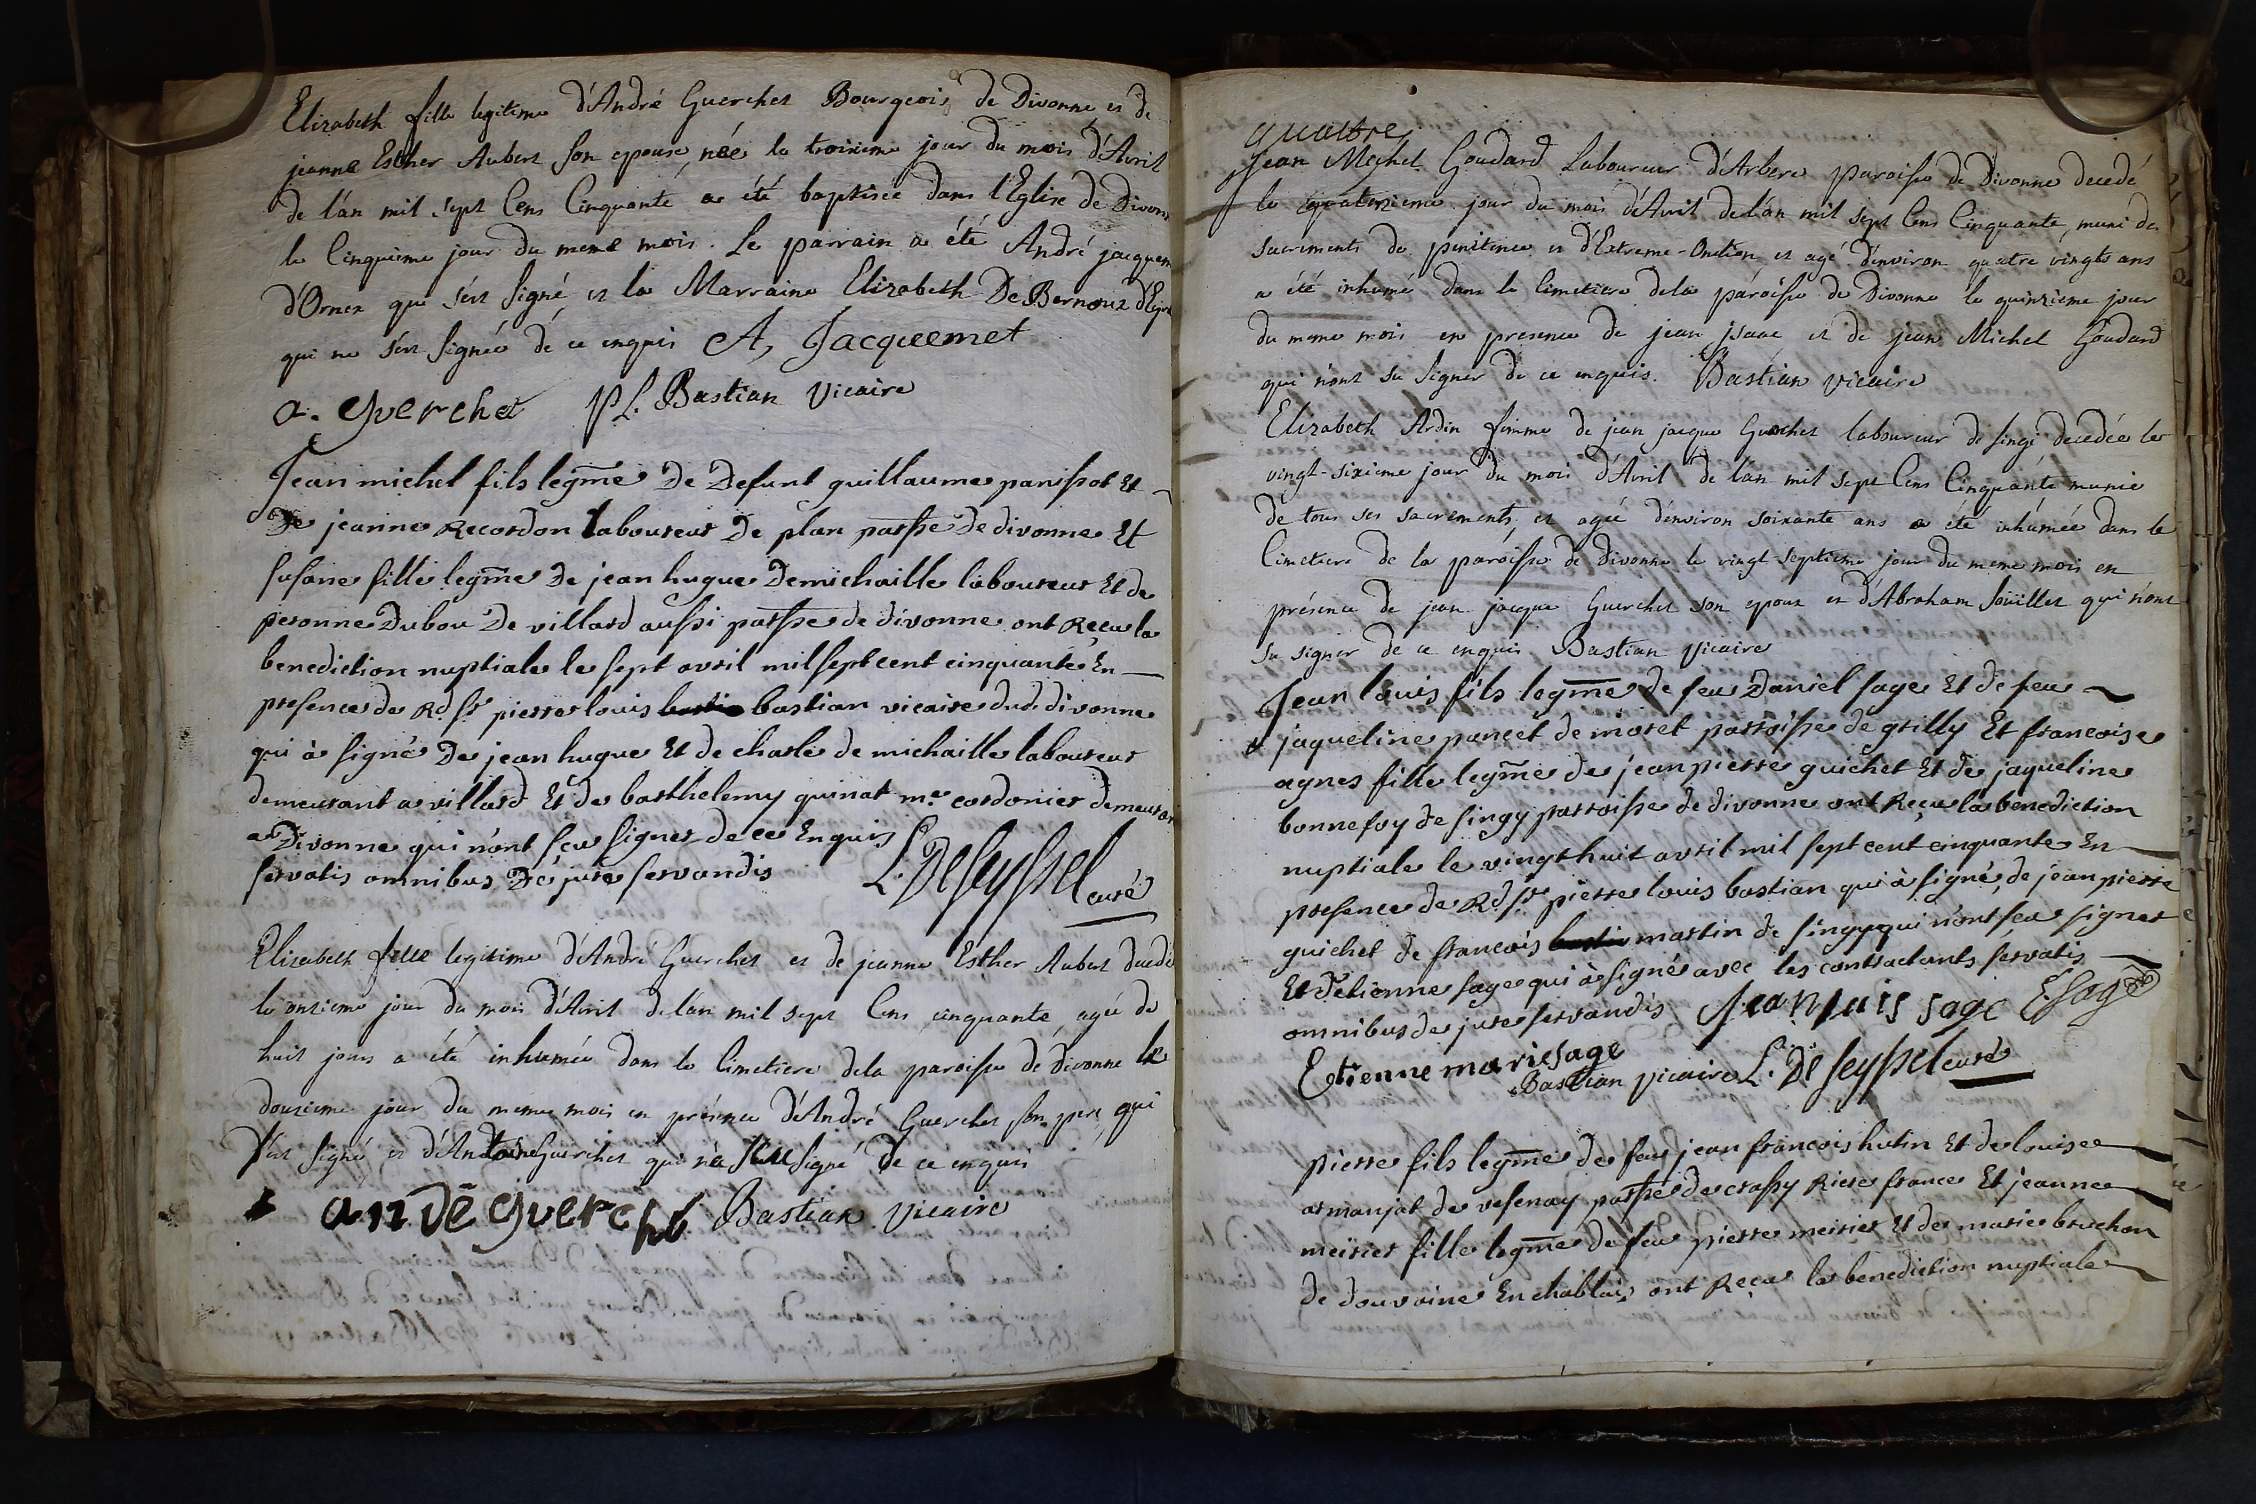 Elizabeth fille legitime d'André Guerchet Bourgeois de Divonne et de
jeanne Esther Aubert son epouse, née le troisieme jour du mois d'Avril
de l'an mil sept Cens Cinquante, a été baptisée dans l'Eglise de Divonne
le Cinquieme jour du meme mois. Le parrain a été André jacquem
d'Ornex qui s'est signé, et la Marraine Elizabeth De Bernoux
qui ne s'est signée de ce enquis A, Jacquemet
a. Guerchet PL. Bastian Vicaire
Jean michel fils legme De Defunt guillaume panissot Et
De jeanne Recordon laboureur De plan parsse De divonne Et
susane fille legme De jean hugue Demichaille laboureur Et de
peronne Dubou De villard aussi parsse de divonne ont Reçu la
benediction nuptiale le sept avril mil sept cent cinquante En
presence de Rd sr pierre louis basti bastian vicaire dud. divonne
qui à signé De jean hugue Et de charle de michaille laboureur
demeurant a villard Et de barthelemy quinat me cordonier demeurant
a Divonne qui n'ont sçu signer de ce Enquis
servatis omnibus De jure servandis L. De Seyssel curé
Elizabeth fille legitime d'André Guerchet et de jeanne Esther Aubert decedé
le onzieme jour du mois d'Avril de l'an mil sept Cens cinquante, agée de
huit jours a été inhumée dans le Cimetiere de la paroisse de Divonne le
douzieme jour du meme mois en présence d'André Guerchet son pere, qui
s'est signé et d'Antoine Guerchet qui n'a sceu signé de ce enquis
andé guerché Bastian Vicaire
quattre
Jean Michel Goudard Laboureur d'Arbere paroisse de Divonne decedé
le quatorzieme jour du mois d'Avril de l'an mil sept Cens Cinquante, muni des
sacrements de penitence et d'Extreme-Onction et agé d'environ quatre vingts ans
a été inhumé dans le Cimetiere de la paroisse de Divonne le quinzieme jour
du meme mois en presence de jean jsaac et de jean Michel Goudard
qui n'ont su signer de ce enquis. Bastian vicaire
Elizabeth Ardin femme de jean jacque Guerchet laboureur de singi decedée le
vingt-sixieme jour du mois d'Avril de l'an mil sept Cens Cinquante munie
de tous ses sacrements, et agée d'environ soixante ans a été inhumée dans le
Cimetiere de la paroisse de Divonne le vingt septieme jour du meme mois en
présence de jean jacque Guerchet son epoux et d'Abraham soüillet qui n'ont
su signer de ce enquis Bastian Vicaire
Jean louis fils legme de feu Daniel sage Et de feu
jaqueline pancet de moret parroisse de grilly Et francoise
agnes fille legme de jean pierre guichet Et de jaqueline
bonnefoy de singy parroisse de divonne ont Reçu la benediction
nuptiale le vingt huit avril mil sept cent cinquante En
presence de Rd sr pierre louis bastian qui à signé, de jean pierre
guichet de francois bastin martin de singy qui n'ont sçu signer
Et d'etienne sage qui à signé avec les contractants servatis
omnibus de jure servandis Jean luis sage E. Sage
Etienne marie sage
Bastian vicaire L. De seyssel curé
pierre fils legme de feu jean francois hutin Et de louise
armanjat de vesenay parsse de crassy Riere france Et jeanne
meirier fille legme de feu pierre meirier Et de marie bruchon
de douvaine En chablais ont Reçu la benediction nuptiale